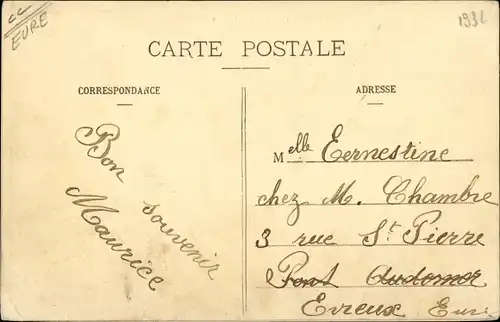 CC
EURE
1932
CARTE POSTALE
CORRESPONDANCE
ADRESSE
Bon souvenir
Maurice
Melle Eernestine
chez M. Chambre
3 rue St Pierre
Pont Audemer
Evreux Eure